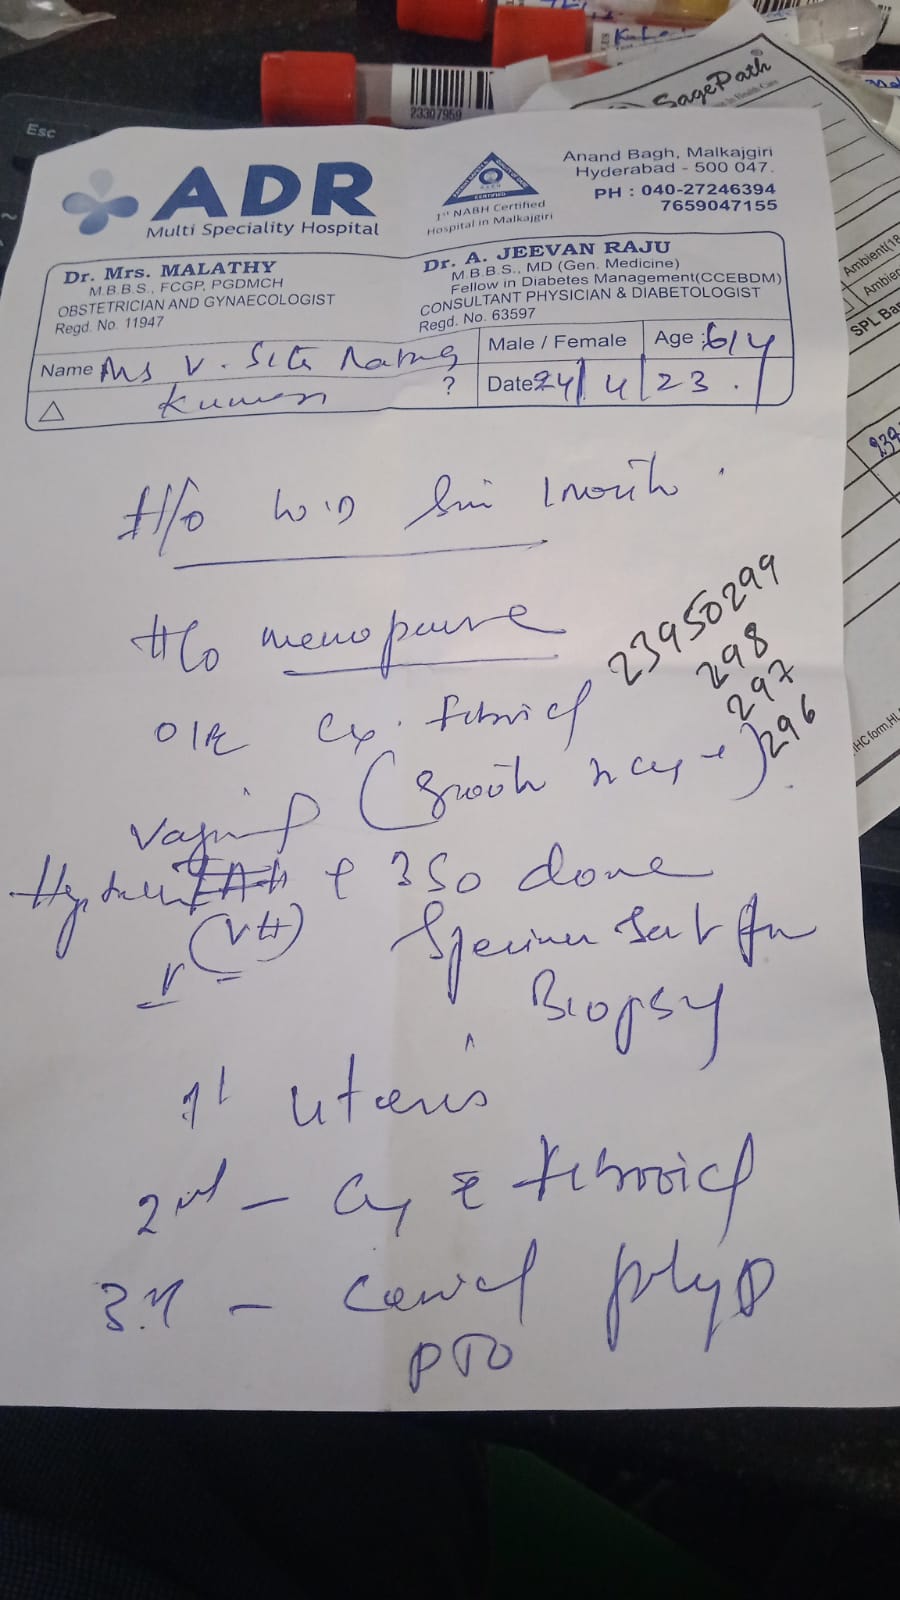 Esc
23307959
SagePath
ADR
Multi Speciality Hospital
1st NABH Certified
Hospital in Malkajgiri
Anand Bagh, Malkajgiri
Hyderabad - 500 047.
PH : 040-27246394
7659047155
Dr. Mrs. MALATHY
M.B.B.S., FCGP, PGDMCH
OBSTETRICIAN AND GYNAECOLOGIST
Regd. No. 11947
Dr. A. JEEVAN RAJU
M.B.B.S., MD (Gen. Medicine)
Fellow in Diabetes Management(CCEBDM)
CONSULTANT PHYSICIAN & DIABETOLOGIST
Regd. No. 63597
Name Ms V. Sita
Male / Female
Age : 61y
?
Date 24/4/23.
H/o
H/o menopause
23950299
298
297
296
O/E Cx. fibroid
Vaginal (Growth
BSO done
(VH)
Specimen Sent for
Biopsy
1st uterus
2nd - Cx c fibroid
3rd - Cervical polyp
PTO
Ambient(18
Ambien
SPL Ba
IHC form,HL